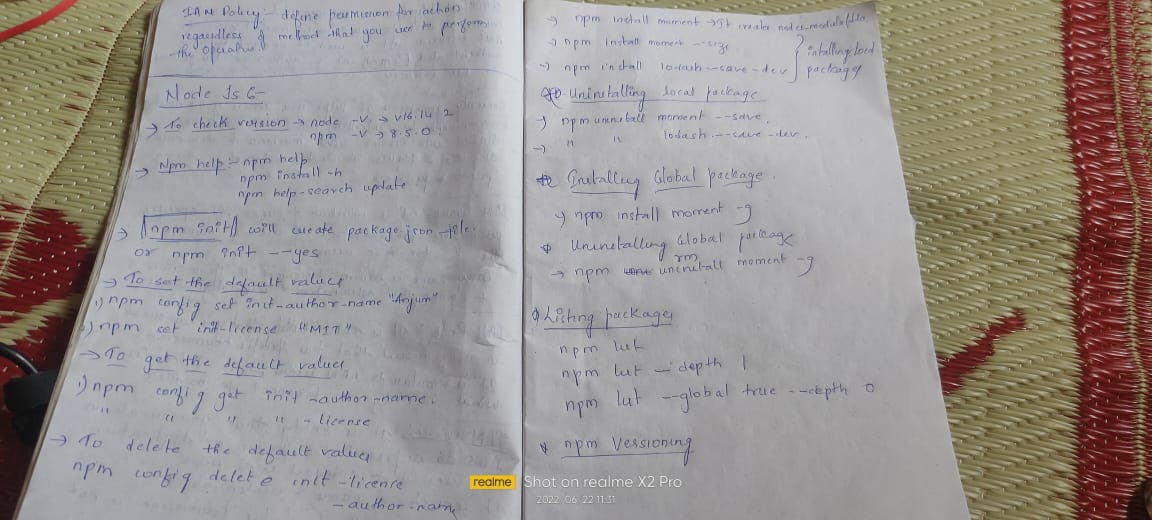 IAM Policy:- define permission for action
regardless of method that you use to perform
the operation
Node Js 6-
→ To check version → node -v → v16.14.2
npm -v → 8.5.0
→ Npm help:- npm help
npm install -h
npm help-search update
→ npm init will create package.json file.
or npm init --yes
→ To set the default values
1) npm config set init-author-name "Anjum"
) npm set init-license "MIT"
→ To get the default values
1) npm config get init-author-name.
" " " " - license
→ To delete the default values
npm config delete init-license
- author-name
→ npm install moment → It create node-modules
→ npm install moment --save
→ npm install lodash --save-dev
installing local
packages
Uninstalling local package
→ npm uninstall moment --save.
→ " " lodash --save-dev.
Installing Global package.
→ npm install moment -g
Uninstalling Global package
→ npm rm uninstall moment -g
Listing packages
npm list
npm list --depth 1
npm list --global true --depth 0
npm Versioning
realme Shot on realme X2 Pro
2022.06.22 11:31